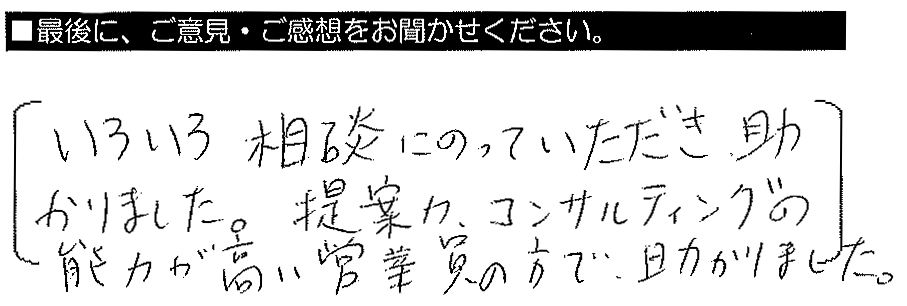 ■最後に、ご意見・ご感想をお聞かせください。
いろいろ相談にのっていただき、助
かりました。提案力、コンサルティングの
能力が高い営業員の方で、助かりました。